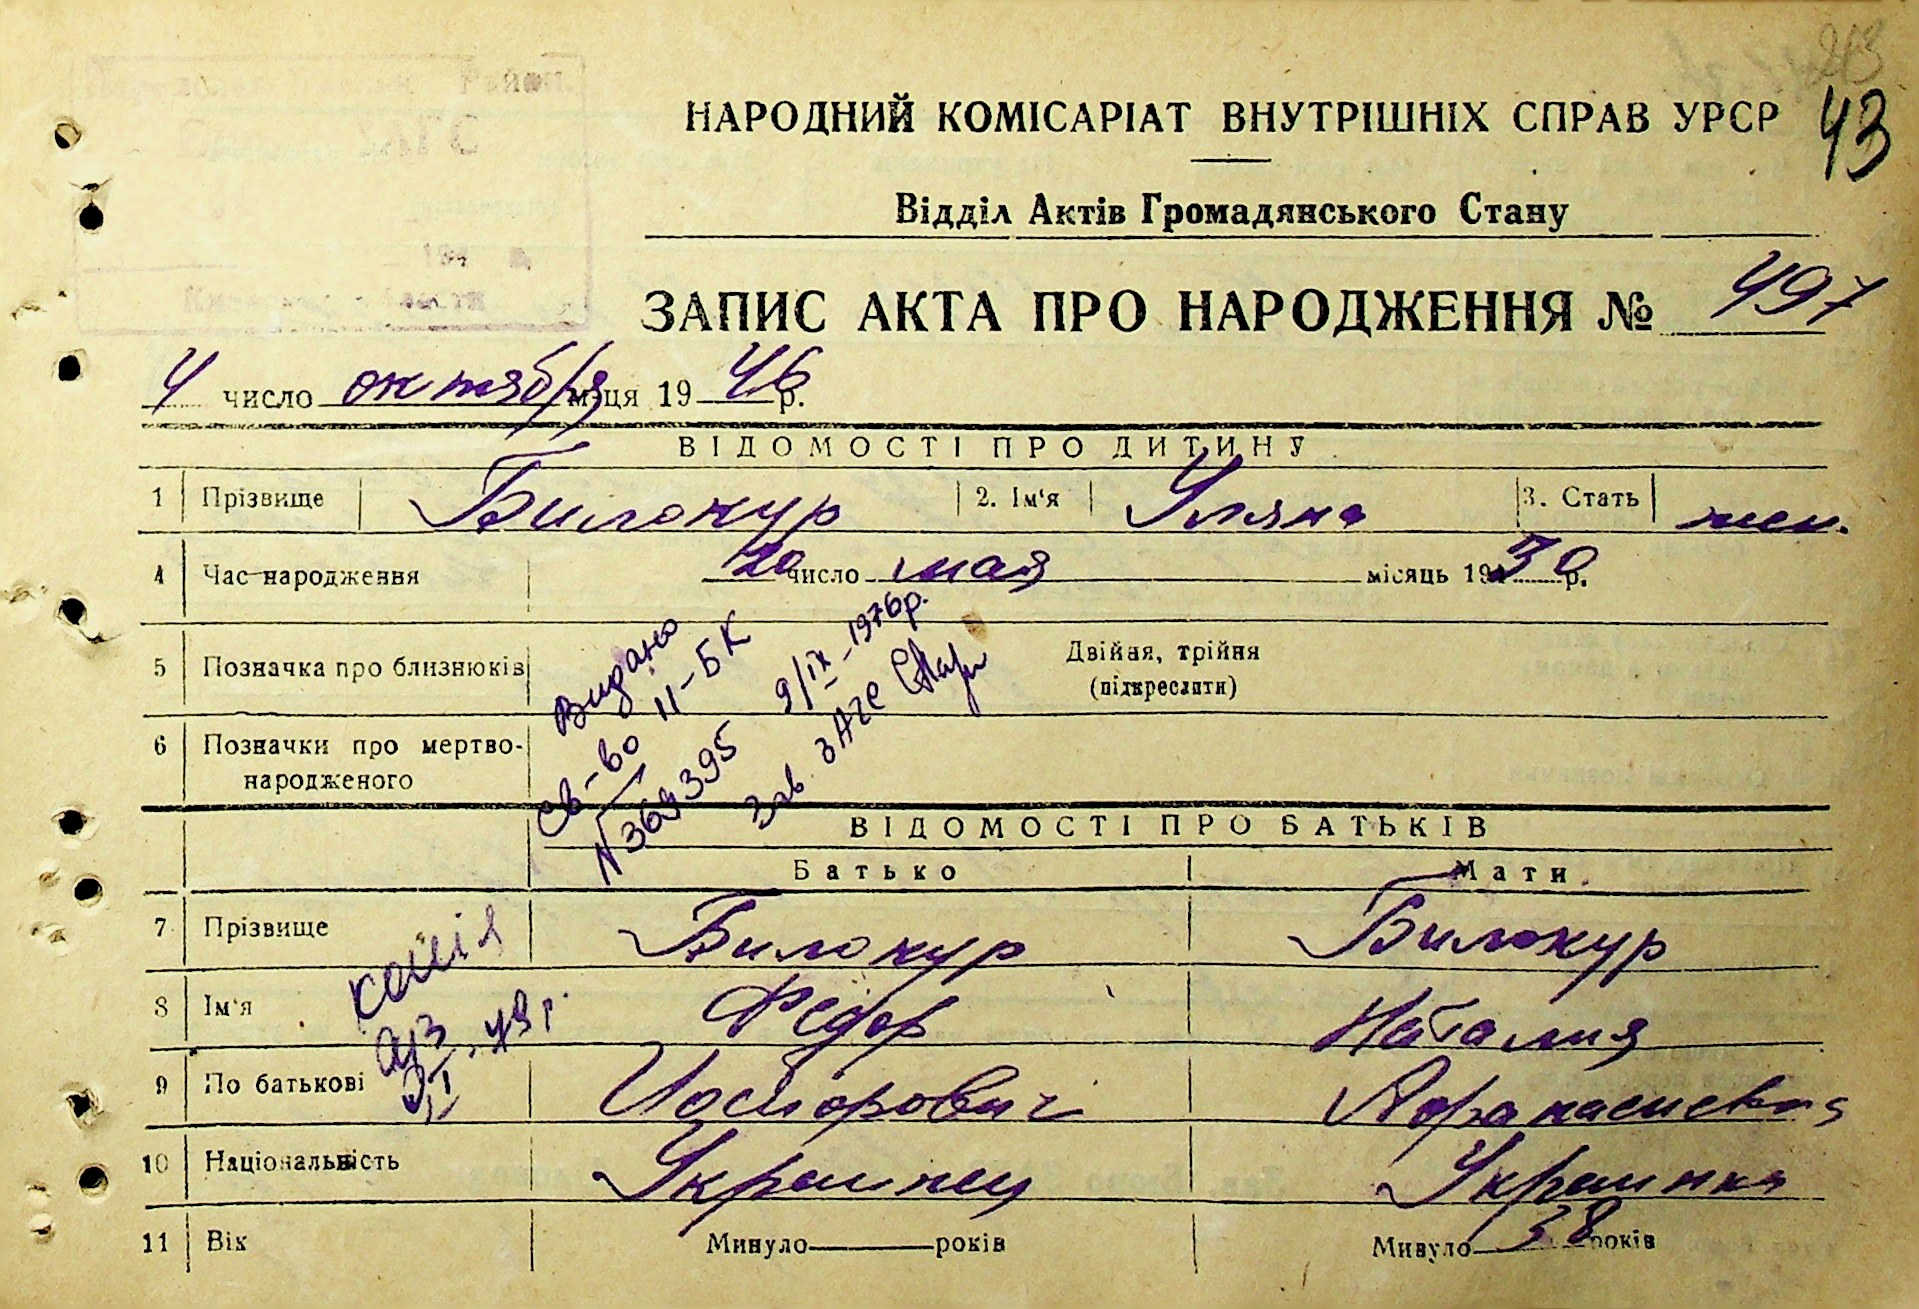 43
НАРОДНИЙ КОМІСАРІАТ ВНУТРІШНІХ СПРАВ УРСР
Відділ Актів Громадянського Стану
ЗАПИС АКТА ПРО НАРОДЖЕННЯ № 497
4 число октября м-ця 19 46 р.
ВІДОМОСТІ ПРО ДИТИНУ
1 Прізвище Билокур 2. Ім'я Уляна 3. Стать жен.
4 Час народження 20 число мая місяць 19 30 р.
5 Позначка про близнюків Двійня, трійня
(підкреслити)
6 Позначки про мертво-
народженого
Видано
св-во II-БК
N 369395 9/IX-1976р.
Зав ЗАГС
ВІДОМОСТІ ПРО БАТЬКІВ
Батько Мати
7 Прізвище Билокур Билокур
копія
8 Ім'я Федор Наталия
9 По батькові Иосифович Афанасиевна
10 Національність Украинец Украинка
11 Вік Минуло років Минуло 38 років